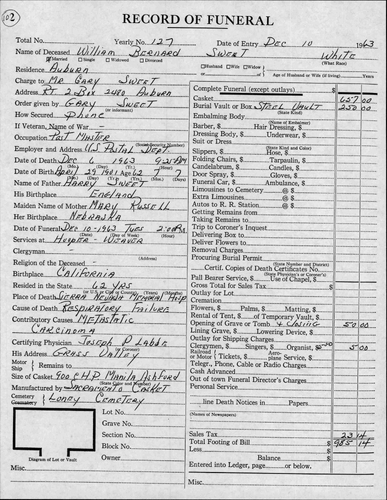 102
RECORD OF FUNERAL
Total No. Yearly No. 127 Date of Entry Dec 10 1963
Name of Deceased William Bernard Sweet White
Married Single Widowed Divorced Husband Wife Widow (What Race)
Residence Auburn of Age of Husband or Wife (if living) Years
Charge to Mr Gary Sweet
Address Rt 2 Box 2480 Auburn
Order given by Gary Sweet
How Secured Phone
If Veteran, Name of War
Occupation Post Master
Employer and Address U.S. Postal Dept.
Date of Death Dec 6 1963 9:25 AM
Date of Birth April 29 1901 Age 62 7 7
Name of Father Harry Sweet
His Birthplace England
Maiden Name of Mother Mary Russell
Her Birthplace Nebraska
Date of Funeral Dec 10-1963 Tues 2:00 PM
Services at Hooper-Weaver
Clergyman
Religion of the Deceased -
Birthplace California
Resided in the State 62 Yrs
Place of Death Sierra Nevada Memorial Hosp
Cause of Death Respiratory Failure
Contributory Causes Metastatic
Carcinoma
Certifying Physician Joseph P Labis
His Address Grass Valley
Motor
Ship Remains to
Size of Casket 500 C.H.P. Manila Ashford
Manufactured by Sacramento Casket
Cemetery
Crematory Loney Cemetery
Lot No.
Grave No.
Section No.
Block No.
Owner
Diagram of Lot or Vault
Misc.
Complete Funeral (except outlays) $
Casket 657 00
Burial Vault or Box Steel Vault 250 00
(State Kind)
Embalming Body
Barber, $ Hair Dressing, $
Dressing Body, $ Underwear, $
Suit or Dress
(State Kind and Color)
Slippers, $ Hose, $
Folding Chairs, $ Tarpaulin, $
Candelabra, $ Candles, $
Door Spray, $ Gloves, $
Funeral Car, $ Ambulance, $
Limousines to Cemetery @ $
Extra Limousines @ $
Autos to R. R. Station @ $
Getting Remains from
Taking Remains to
Trip to Coroner's Inquest
Delivering Box to
Deliver Flowers to
Removal Charges
Procuring Burial Permit
(State Number and District)
Certif. Copies of Death Certificates No.
(State Physician's or Coroner's)
Pall Bearer Service, $ Use of Chapel, $
Gross Total for Sales Tax $
Outlay for Lot
Cremation
Flowers, $ Palms, $ Matting, $
Rental of Tent, $ of Temporary Vault, $
Opening of Grave or Tomb & Closing 50 00
Lining Grave, $ Lowering Device, $
Outlay for Shipping Charges
Clergymen, $ Singers, $ Organist, $ 5 00
Railroad or Motor Tickets, $ Aero-plane Service, $
Telegr., Phone, Cable or Radio Charges
Cash Advanced
Out of town Funeral Director's Charges
Personal Service
line Death Notices in Papers
(Names of Newspapers)
Sales Tax $ 23 14
Total Footing of Bill $ 985 14
Less
Balance $
Entered into Ledger, page or below.
Misc.